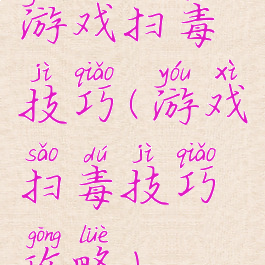 游戏扫毒
jì qiǎo yóu xì
技巧(游戏
sǎo dú jì qiǎo
扫毒技巧
gōng lüè
攻略)